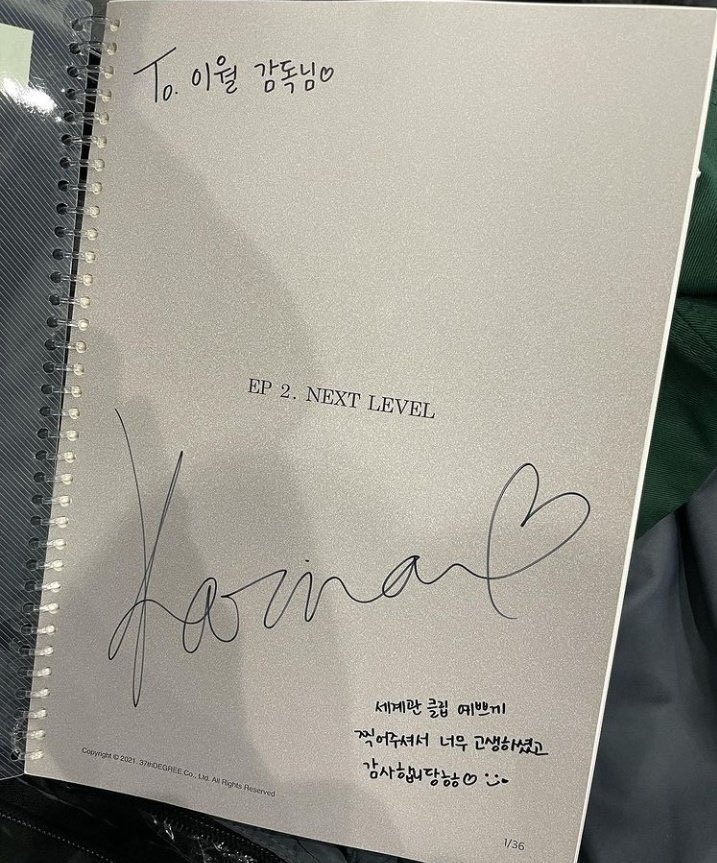 To. 이월 감독님♡
EP 2. NEXT LEVEL
Karina♡
세계관 클립 예쁘게
찍어주셔서 너무 고생하셨고
감사합니당하하♡ :)
Copyright © 2021. 37thDEGREE Co., Ltd. All Rights Reserved
1/36